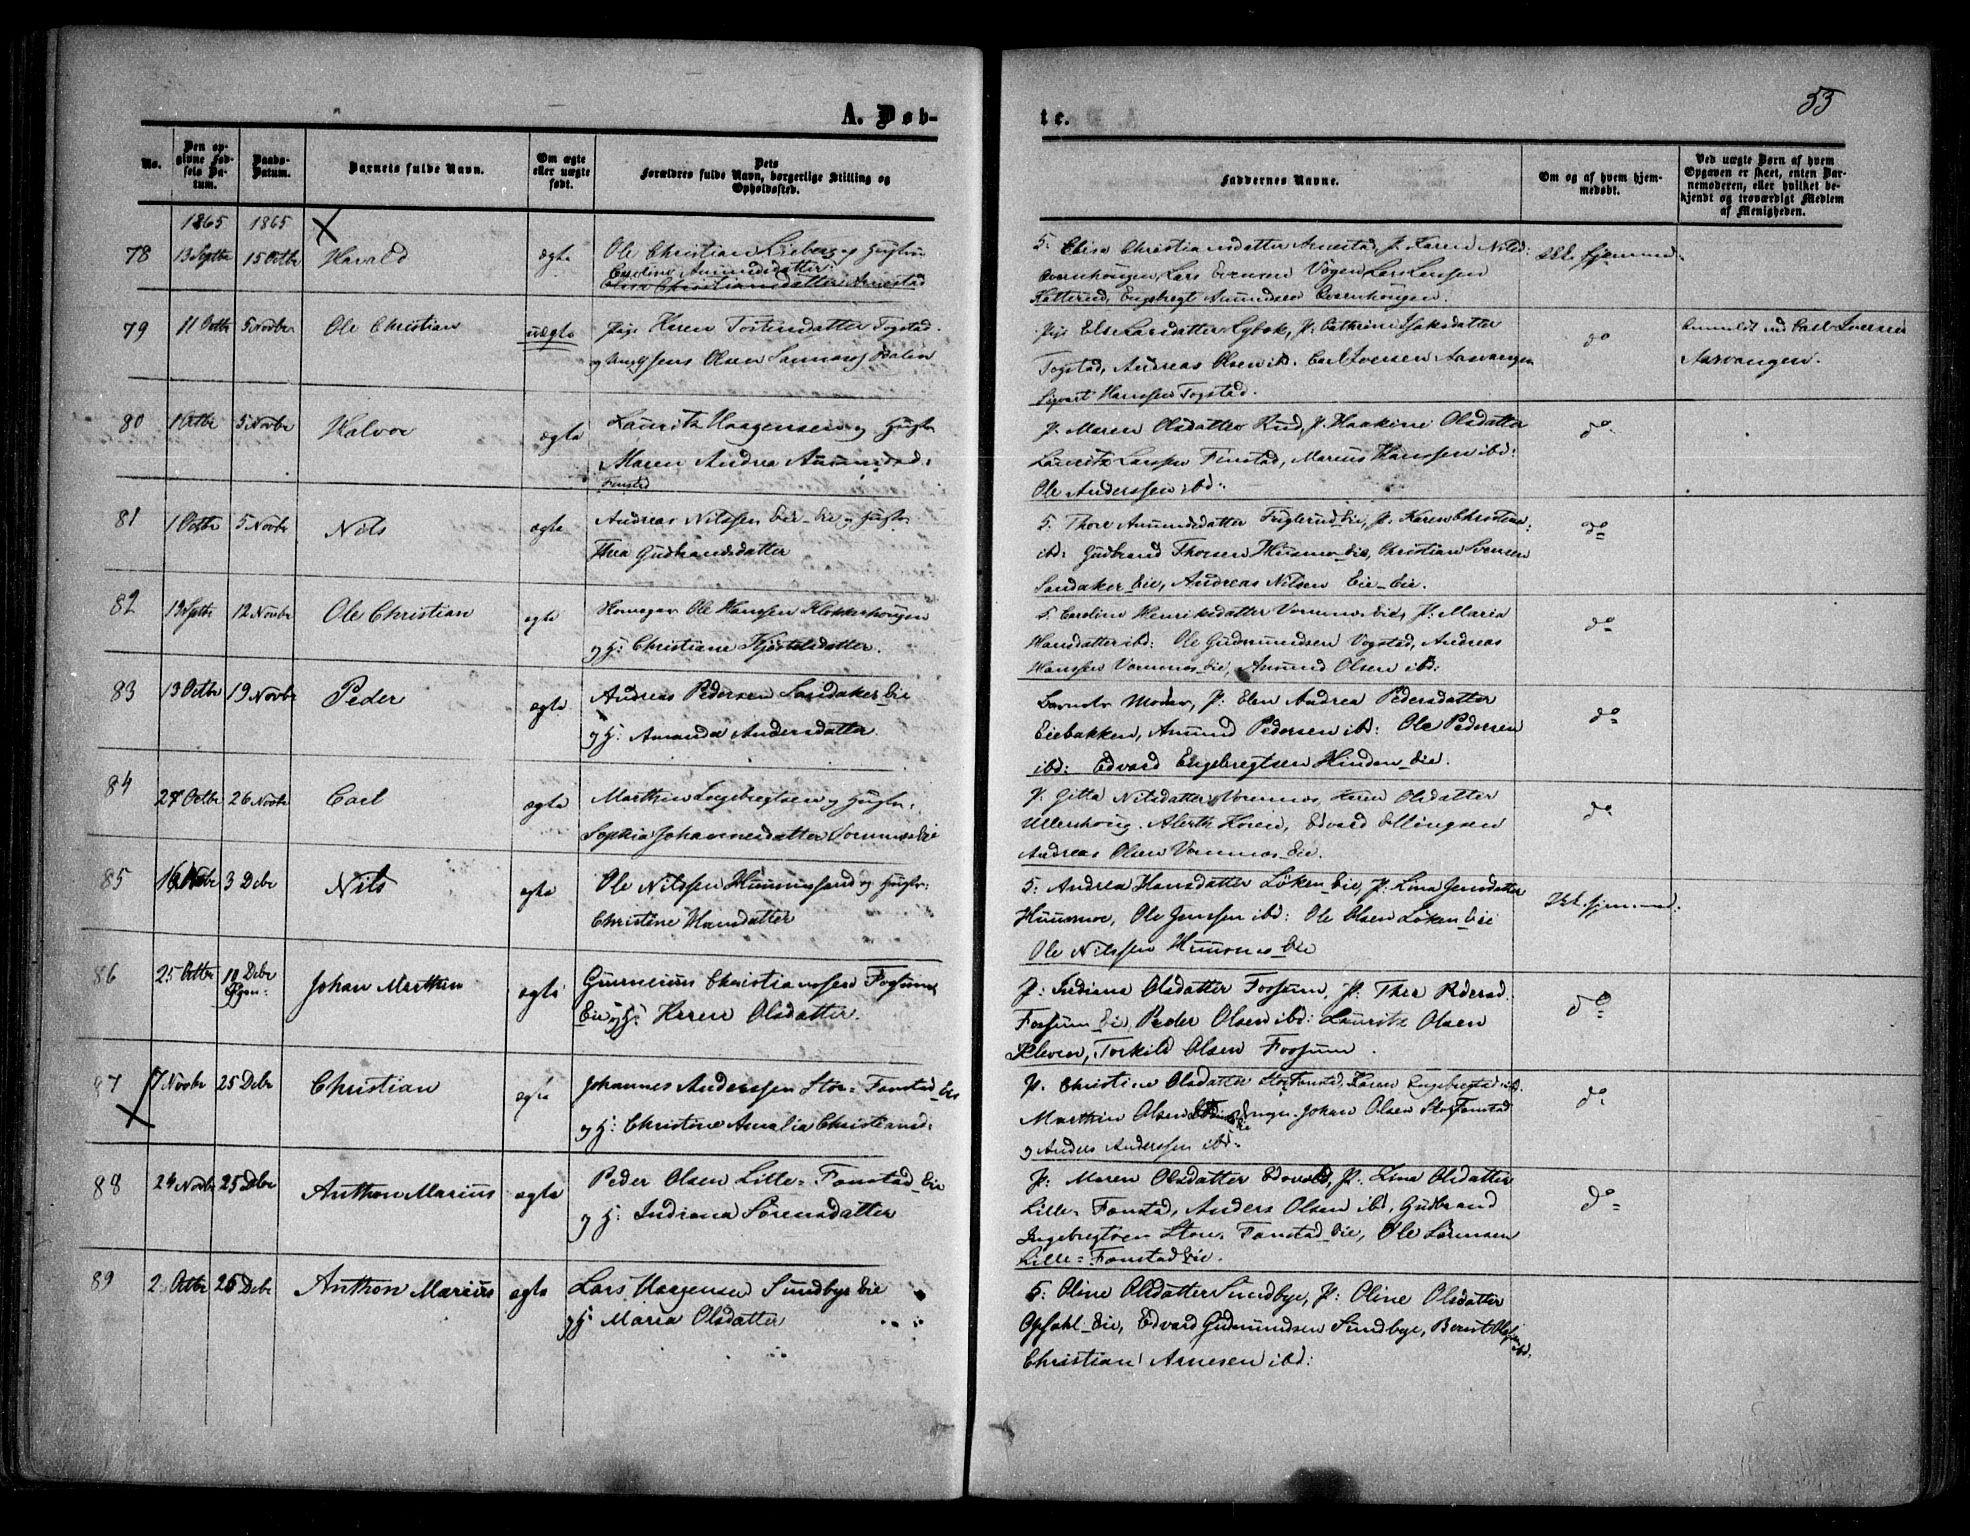 53
A. Døb-
te.
No.
Den op-
givne Fød-
sels Da-
tum.
Daabs-
Datum.
Barnets fulde Navn.
Om ægte
eller uægte
født.
Dets
Forældres fulde Navn, borgerlige Stilling og
Opholdssted.
Faddernes Navne.
Om og af hvem hjem-
medøbt.
Ved uægte Børn af hvem
Opgaven er skeet, enten Bar-
nemoderen, eller hvilket be-
kjendt og troværdigt Medlem
af Menigheden.
1865 1865
78 13 Septbr 15 Octbr Harald ægte
Ole Christian Lieberg og Hustru
Caroline Amundsdatter
Elisa Christiansdatter Arnestad
5: Elisa Christiansdatter Arnestad, P: Karen Nilsd:
Evenhougen, Lars Evensen Vogen Lars Larsen
Katterud, Engebregt Amundsen Evenhougen.
Ikke hjemmed:
79 11 Octbr 5 Novbr Ole Christian uægte
Pige Karen Tostensdatter Togstad
og Jens Olsen
Pige Else Larsdatter P: Cathrine Isaksdatter
Togstad, Andreas Olsen ibd. Carl Iversen Aasvangen
Sigvart Hanssen Togstad.
do
Anmeldt ved Carl Iversen
Aasvangen.
80 1 Octbr 5 Novbr Halvor ægte
Lauritz Haagensen og Hustr
Maren Andrea Amundsd:
Finstad
P. Maren Olsdatter Rud, P. Haakine Olsdatter
Lauritz Larssen Finstad, Marius Hanssen ibd:
Ole Anderssen ibd:
do
81 1 Octbr 5 Novbr Nils ægte
Andreas Nilssen Eie-Eie og Hustr:
Thea Gudbrandsdatter
5. Thore Amundsdatter Fuglerud Eie, P. Karen Christine
ibd: Gudbrand Thorsen Huusmo Eie, Christian Svensen
Sandaker Eie, Andreas Nilsen Eie-Eie.
do
82 13 Septbr 12 Novbr Ole Christian ægte
Ole Hanssen Klokkerhougen
og H: Christiane Kjostelsdatter.
5. Caroline Henriksdatter Vormnes Eie, P: Maria
Hansdatter ibd: Ole Gudmundsen Vogstad, Andreas
Hanssen Vormnes Eie, Amund Olsen ibd:
do
83 13 Octbr 19 Novbr Peder ægte
Andreas Pedersen Sandaker Eie
og H: Amanda Andersdatter.
Barnets Moder, P: Elen Andrea Pedersdatter
Eiebakken, Amund Pedersen ibd: Ole Pedersen
ibd: Edvard Engebregtsen Hinden Eie.
do
84 27 Octbr 26 Novbr Carl ægte
Marthin Engebregtsen og Hustr:
Sophia Johannesdatter Vormnes Eie
P. Gitta Nilsdatter Vormnes, Karen Olsdatter
Ullershoug. Alerth Horen, Edvard Ellingsen
Andreas Olsen Vormnes Eie.
do
85 16 Novbr 3 Debr Nils ægte
Ole Nilssen Hummesand og Hustr:
Christine Hansdatter
5: Andrea Hansdatter Löken Eie, P. Lina Jensdatter
Huusmoe, Ole Jenssen ibd: Ole Olsen Löken Eie
Ole Nilssen Huusmo Eie
Ikke hjemmed:
86 25 Octbr 10 Debr Johan Marthin ægte
Gunerius Christianssen Fossum
Eie og H: Karen Olsdatter.
P: Indiana Olsdatter Fossum, P: Thea Pedersd:
Fossum Eie, Peder Olsen ibd: Lauritz Olsen
Kleven, Torkild Olsen Fossum.
do
87 7 Novbr 25 Debr Christian ægte
Johannes Anderssen Stor-Fonstad Eie
og H: Christine Amalia Christiansd:
P. Christine Olsdatter Stor Fonstad, Karen Engebregtsd ibd.
Marthin Olsen Johan Olsen Stor Fonstad
og Anders Anderssen ibd:
do
88 24 Novbr 25 Debr Anthon Marius ægte
Peder Olsen Lille-Fonstad Eie
og H: Indiana Sörensdatter
P: Maren Olsdatter Edvold, P. Lina Olsdatter
Lille-Fonstad, Anders Olsen ibd, Gudbrand
Ingebregtsen Store Fonstad Eie, Ole Sörensen
Lille-Fonstad Eie.
do
89 2 Octbr 26 Debr Anthon Marius ægte
Lars Haagensen Sundbye Eie
og H: Maria Olsdatter
5: Oline Olsdatter Sundbye, P: Oline Olsdatter
Opsahl Eie, Edvard Gudmundsen Sundbye, Bernt Olsen ibd.
Christian Arnesen ibd: